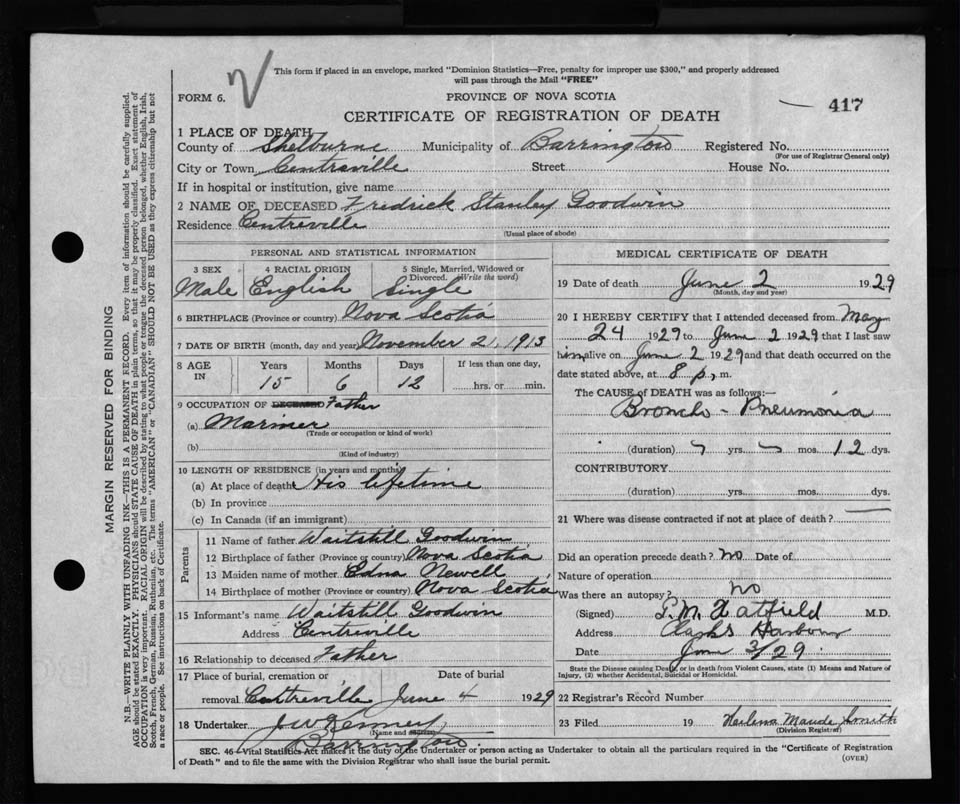 This form if placed in an envelope, marked "Dominion Statistics—Free, penalty for improper use $300," and properly addressed
will pass through the Mail "FREE"
FORM 6.
PROVINCE OF NOVA SCOTIA
417
CERTIFICATE OF REGISTRATION OF DEATH
1 PLACE OF DEATH
County of Shelburne Municipality of Barrington Registered No.
(For use of Registrar General only)
City or Town Centreville Street House No.
If in hospital or institution, give name
2 NAME OF DECEASED Fredrick Stanley Goodwin
Residence Centreville
(Usual place of abode)
PERSONAL AND STATISTICAL INFORMATION
3 SEX 4 RACIAL ORIGIN 5 Single, Married, Widowed or Divorced. (Write the word)
Male English Single
6 BIRTHPLACE (Province or country) Nova Scotia
7 DATE OF BIRTH (month, day and year) November 21, 1913
8 AGE IN Years Months Days If less than one day,
15 6 12 hrs. or min.
9 OCCUPATION OF DECEASED Father
(a) Mariner
(Trade or occupation or kind of work)
(b)
(Kind of industry)
10 LENGTH OF RESIDENCE (in years and months)
(a) At place of death His lifetime
(b) In province
(c) In Canada (if an immigrant)
Parents
11 Name of father Waitstill Goodwin
12 Birthplace of father (Province or country) Nova Scotia
13 Maiden name of mother Edna Newell
14 Birthplace of mother (Province or country) Nova Scotia
15 Informant's name Waitstill Goodwin
Address Centreville
16 Relationship to deceased Father
17 Place of burial, cremation or Date of burial
removal Centreville June 4 1929
18 Undertaker
(Name and address)
Barrington
MEDICAL CERTIFICATE OF DEATH
19 Date of death June 2 1929
(Month, day and year)
20 I HEREBY CERTIFY that I attended deceased from May
24 1929 to June 2 1929 that I last saw
him alive on June 2 1929 and that death occurred on the
date stated above, at 8 p. m.
The CAUSE of DEATH was as follows:
Broncho-Pneumonia
(duration) yrs. mos. 12 dys.
CONTRIBUTORY
(duration) yrs. mos. dys.
21 Where was disease contracted if not at place of death?
Did an operation precede death? no Date of
Nature of operation
Was there an autopsy? no
(Signed) T.M. Hatfield M.D.
Address Clarks Harbour
Date June 3/29
State the Disease causing Death, or in death from Violent Causes, state (1) Means and Nature of
Injury, (2) whether Accidental, Suicidal or Homicidal.
22 Registrar's Record Number
23 Filed 19 Maude Smith
(Division Registrar)
SEC. 46—Vital Statistics Act makes it the duty of the Undertaker or person acting as Undertaker to obtain all the particulars required in the "Certificate of Registration
of Death" and to file the same with the Division Registrar who shall issue the burial permit. (OVER)
MARGIN RESERVED FOR BINDING
N.B.—WRITE PLAINLY WITH UNFADING INK—THIS IS A PERMANENT RECORD. Every item of information should be carefully supplied.
AGE should be stated EXACTLY. PHYSICIANS should STATE CAUSE OF DEATH in plain terms, so that it may be properly classified. Exact statement of
OCCUPATION is very important. RACIAL ORIGIN will be described by stating to what people or tongue the deceased person belonged, whether English, Irish,
Scotch, French, German, Russian, Ruthenian, etc. The terms "AMERICAN" or "CANADIAN" SHOULD NOT BE USED as they express citizenship but not
a race or people. See instructions on back of Certificate.